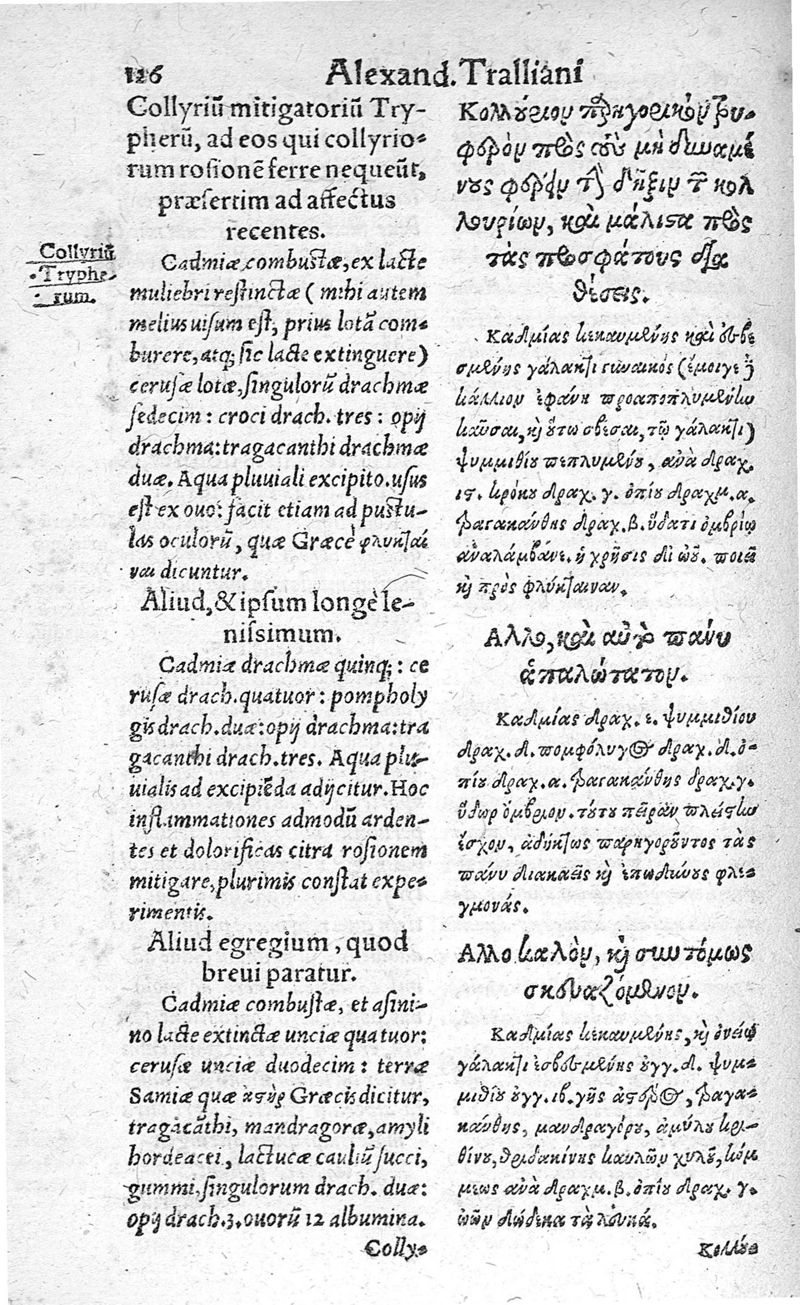 126
Alexand. Tralliani
Collyriū mitigatoriū Try-
pherū, ad eos qui collyrio-
rum rosionē ferre nequeūt,
præsertim ad affectus
recentes.
Collyriū
Tryphe-
rum.
Cadmiæ combustæ, ex lacte
muliebri restinctæ ( mihi autem
melius uisum est, prius lotā com-
burere, atq; sic lacte extinguere)
cerusæ lotæ, singulorū drachmæ
sedecim : croci drach. tres : opij
drachma: tragacanthi drachmæ
duæ. Aqua pluuiali excipito. usus
est ex ouo: facit etiam ad pustu-
las oculorū, quæ Græcè φλυκταί
ναι dicuntur.
Aliud, & ipsum longè le-
nissimum.
Cadmiæ drachmæ quinq; : ce
rusæ drach. quatuor : pompholy
gis drach. duæ: opij drachma: tra
gacanthi drach. tres. Aqua plu-
uialis ad excipiēda adijcitur. Hoc
inflammationes admodū arden-
tes et dolorificas citra rosionem
mitigare, plurimis constat expe-
rimentis.
Aliud egregium, quod
breui paratur.
Cadmiæ combustæ, et asini-
no lacte extinctæ unciæ quatuor:
cerusæ unciæ duodecim : terræ
Samiæ quæ ἀστὴρ Græcis dicitur,
tragacāthi, mandragoræ, amyli
hordeacei, lactucæ cauliū succi,
gummi, singulorum drach. duæ:
opij drach. 3. ouorū 12 albumina.
Colly-
Κολλούριον παρηγορικὸν τρυ-
φερὸν πρὸς τοὺς μὴ δυναμέ
νους φέρειν τὴν δῆξιν τῶν κολ
λουρίων, καὶ μάλιστα πρὸς
τὰς προσφάτους δια
θέσεις.
Καδμίας κεκαυμένης καὶ ἐσβε
σμένης γάλακτι γυναικὸς (ἔμοιγε δὲ
κάλλιον ἐφάνη προαποπλυμένην
καῦσαι, καὶ οὕτω σβέσαι, τῷ γάλακτι)
ψυμμιθίου πεπλυμένου, ἀνὰ δραχ.
ις. κρόκου δραχ. γ. ὀπίου δραχμ. α.
τραγακάνθης δραχ. β. ὕδατι ὀμβρίῳ
ἀναλάμβανε. ἡ χρῆσις δι ὠοῦ. ποιεῖ
καὶ πρὸς φλύκταιναν.
Αλλο, καὶ αὐτὸ πάνυ
ἁπαλώτατον.
Καδμίας δραχ. ε. ψυμμιθίου
δραχ. δ. πομφόλυγος δραχ. δ. ὀ-
πίου δραχ. α. τραγακάνθης δραχ. γ.
ὕδωρ ὄμβριον. τούτου πεῖραν πλείστην
ἔσχον, ἀδήκτως παρηγοροῦντος τὰς
πάνυ διακαεῖς καὶ ἐπωδύνους φλε-
γμονάς.
Αλλο καλὸν, καὶ συντόμως
σκευαζόμενον.
Καδμίας κεκαυμένης, καὶ ὀνείῳ
γάλακτι ἐσβεσμένης ουγγ. δ. ψυμ-
μιθίου ουγγ. ιβ. γῆς ἀστέρος, τραγα-
κάνθης, μανδραγόρου, ἀμύλου κρι-
θίνου, θριδακίνης καυλῶν χυλοῦ, κόμ
μεως ἀνὰ δραχμ. β. ὀπίου δραχ. γ.
ὠῶν δώδεκα τὰ λευκά.
Κολλού-